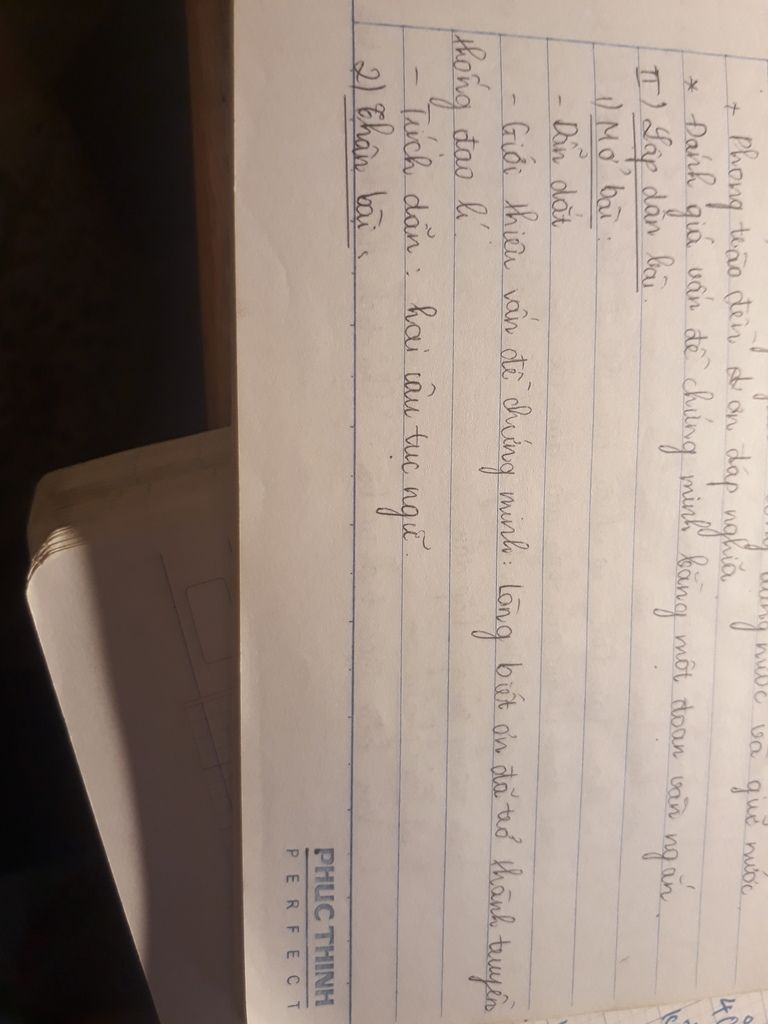 dựng nước và giữ nước.
+ Phong trào đền ơn đáp nghĩa
* Đánh giá vấn đề chứng minh bằng một đoạn văn ngắn.
II) Lập dàn bài.
1) Mở bài:
- Dẫn dắt
- Giới thiệu vấn đề chứng minh: lòng biết ơn đã trở thành truyền
thống đạo lí.
- Trích dẫn: hai câu tục ngữ.
2) Thân bài:
PHUC THINH
PERFECT